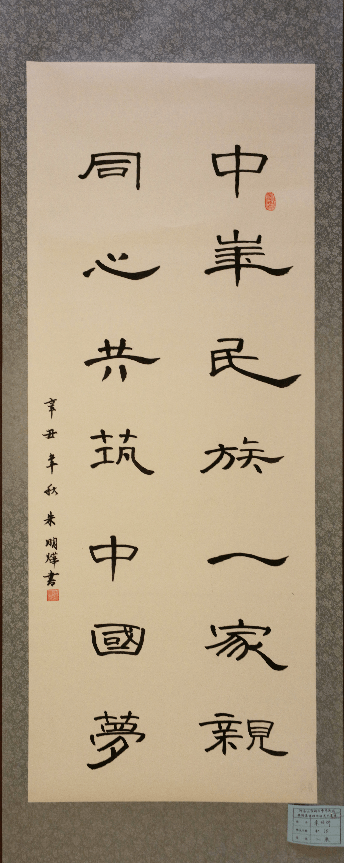 中華民族一家親
同心共筑中國夢
辛丑年秋 朱明燁書